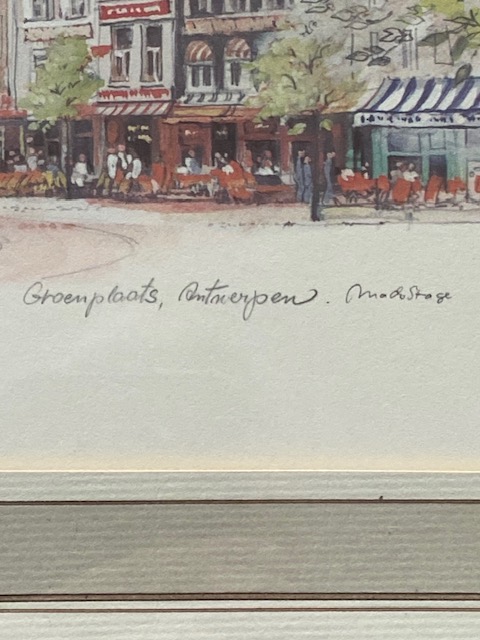 Groenplaats, Antwerpen. Mads Stage